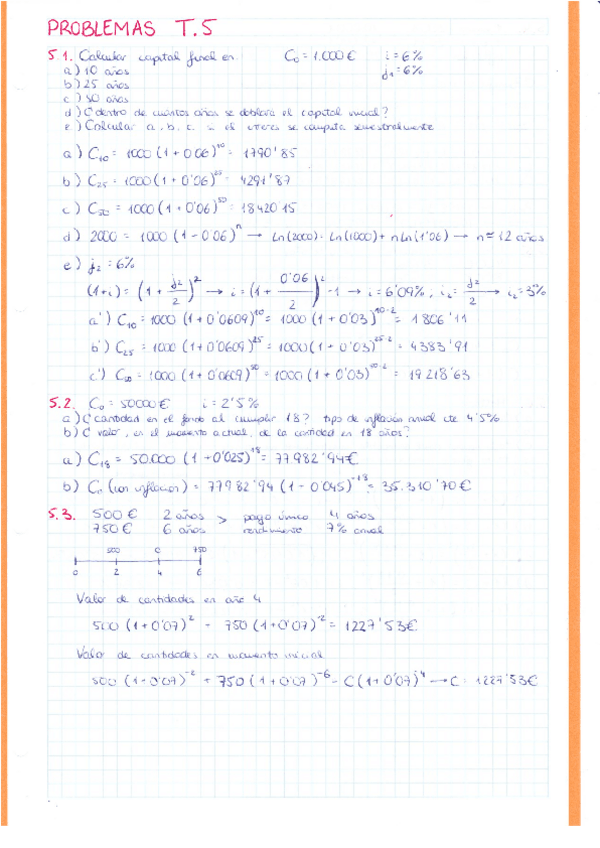 PROBLEMAS T.5
5.1. Calcular capital final en C₀ = 1.000€ i = 6%
a) 10 años j₁ = 6%
b) 25 años
c) 50 años
d) ¿dentro de cuántos años se doblará el capital inicial?
e) Calcular a, b, c. = el interés se computa semestralmente
a) C₁₀ = 1000 (1 + 0'06)¹⁰ = 1790'85
b) C₂₅ = 1000 (1 + 0'06)²⁵ = 4291'87
c) C₅₀ = 1000 (1 + 0'06)⁵⁰ = 18420'15
d) 2000 = 1000 (1 - 0'06)ⁿ → Ln(2000) = Ln(1000) + n Ln(1'06) → n = 12 años
e) j₂ = 6%
(1+i) = (1 + j₂/2)² → i = (1 + 0'06/2)² - 1 → i = 6'09%, i₂ = j₂/2 → i₂ = 3%
a') C₁₀ = 1000 (1 + 0'0609)¹⁰ = 1000 (1 + 0'03)¹⁰·² = 1806'11
b') C₂₅ = 1000 (1 + 0'0609)²⁵ = 1000 (1 + 0'03)²⁵·² = 4383'91
c') C₅₀ = 1000 (1 + 0'0609)⁵⁰ = 1000 (1 + 0'03)⁵⁰·² = 19218'63
5.2. C₀ = 50000€ i = 2'5%
a) ¿cantidad en el fondo al cumplir 18? tipo de inflación anual cte 4'5%
b) ¿valor, en el momento actual, de la cantidad en 18 años?
a) C₁₈ = 50.000 (1 + 0'025)¹⁸ = 77.982'94€
b) C₀ (con inflación) = 77982'94 (1 - 0'045)⁻¹⁸ = 35.310'70€
5.3. 500€ 2 años > pago único 4 años
750€ 6 años rendimiento 7% anual
500 C 750
0 2 4 6
Valor de cantidades en año 4
500 (1+0'07)² - 750 (1+0'07)⁻² = 1227'53€
Valor de cantidades en momento inicial
500 (1-0'07)⁻² + 750 (1+0'07)⁻⁶ - C (1+0'07)⁴ → C = 1227'53€